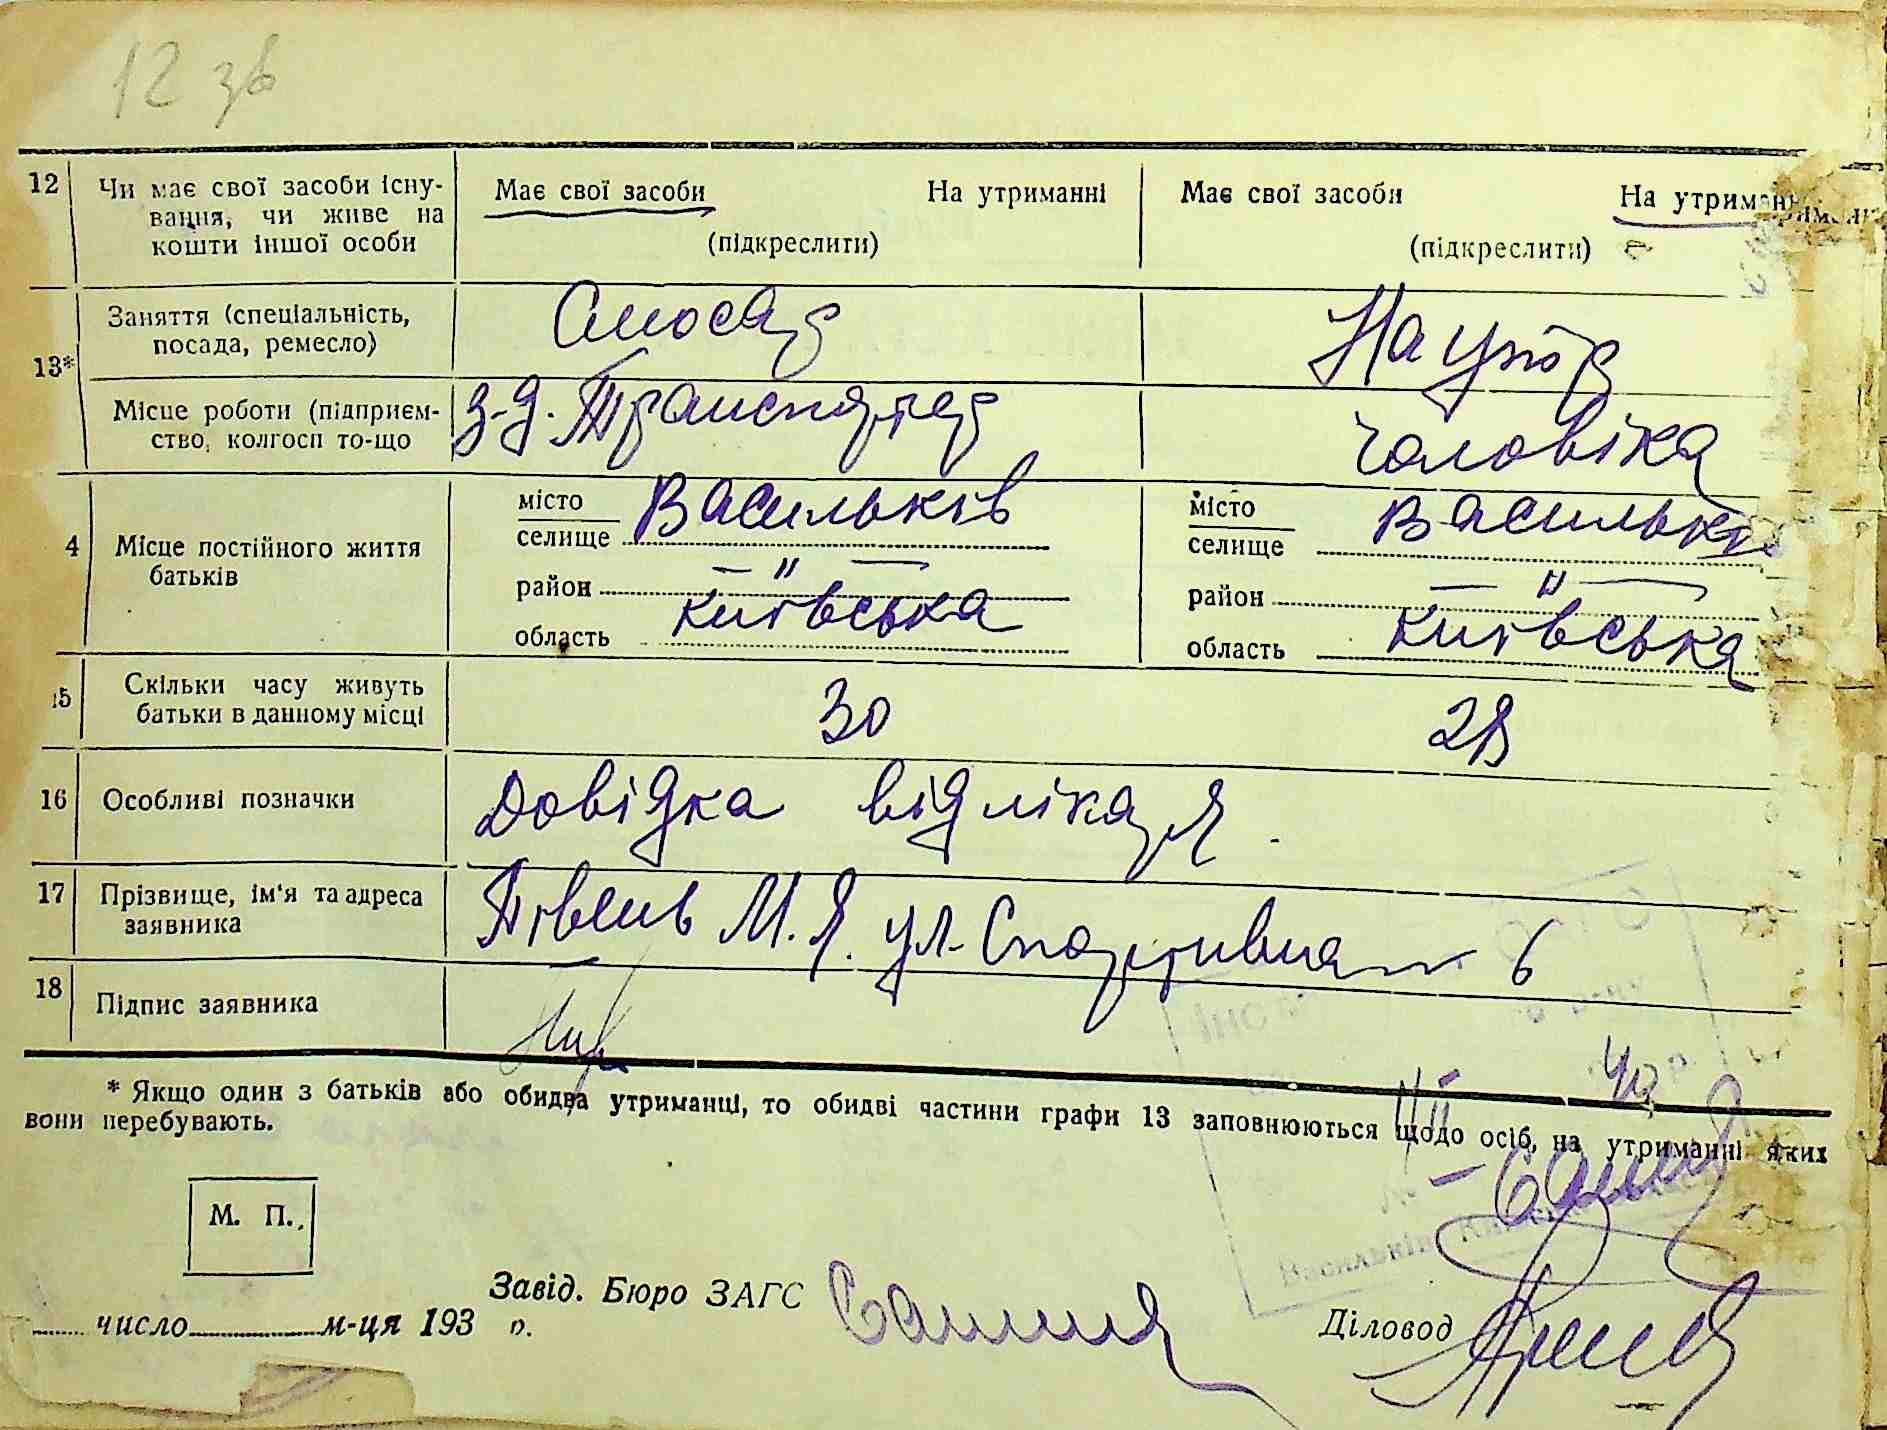 12 зв
12 Чи має свої засоби існу- Має свої засоби На утриманні Має свої засоби На утриманні
вання, чи живе на
кошти іншої особи (підкреслити) (підкреслити)
13* Заняття (спеціальність, Слюсар На утр
посада, ремесло)
Місце роботи (підприєм- з-д. Транспортер чоловіка
ство, колгосп то-що
4 Місце постійного життя місто Васильків місто Васильків
батьків селище селище
район —"— район —"—
область Київська область Київська
15 Скільки часу живуть 30 28
батьки в данному місці
16 Особливі позначки Довідка від лікаря.
17 Прізвище, ім'я та адреса Півень М. Я. ул. Спортивна 6
заявника
18 Підпис заявника
* Якщо один з батьків або обидва утриманці, то обидві частини графи 13 заповнюються щодо осіб, на утриманні яких
вони перебувають.
М. П.
Завід. Бюро ЗАГС
число м-ця 193 р.
Діловод